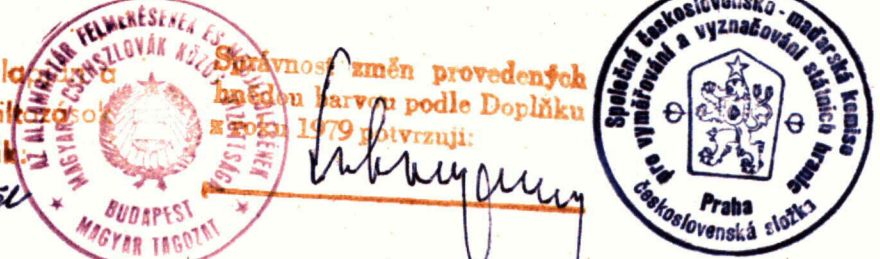 AZ ÁLLAMHATÁR FELMÉRÉSÉNEK ÉS
MAGYAR-CSEHSZLOVÁK KÖZÖS
BUDAPEST
MAGYAR TAGOZAT
Správnost změn provedených
hnědou barvou podle Doplňku
z roku 1979 potvrzuji:
Společná československo-maďarská komise
pro vyměřování a vyznačování státních hranic
Praha
Československá složka